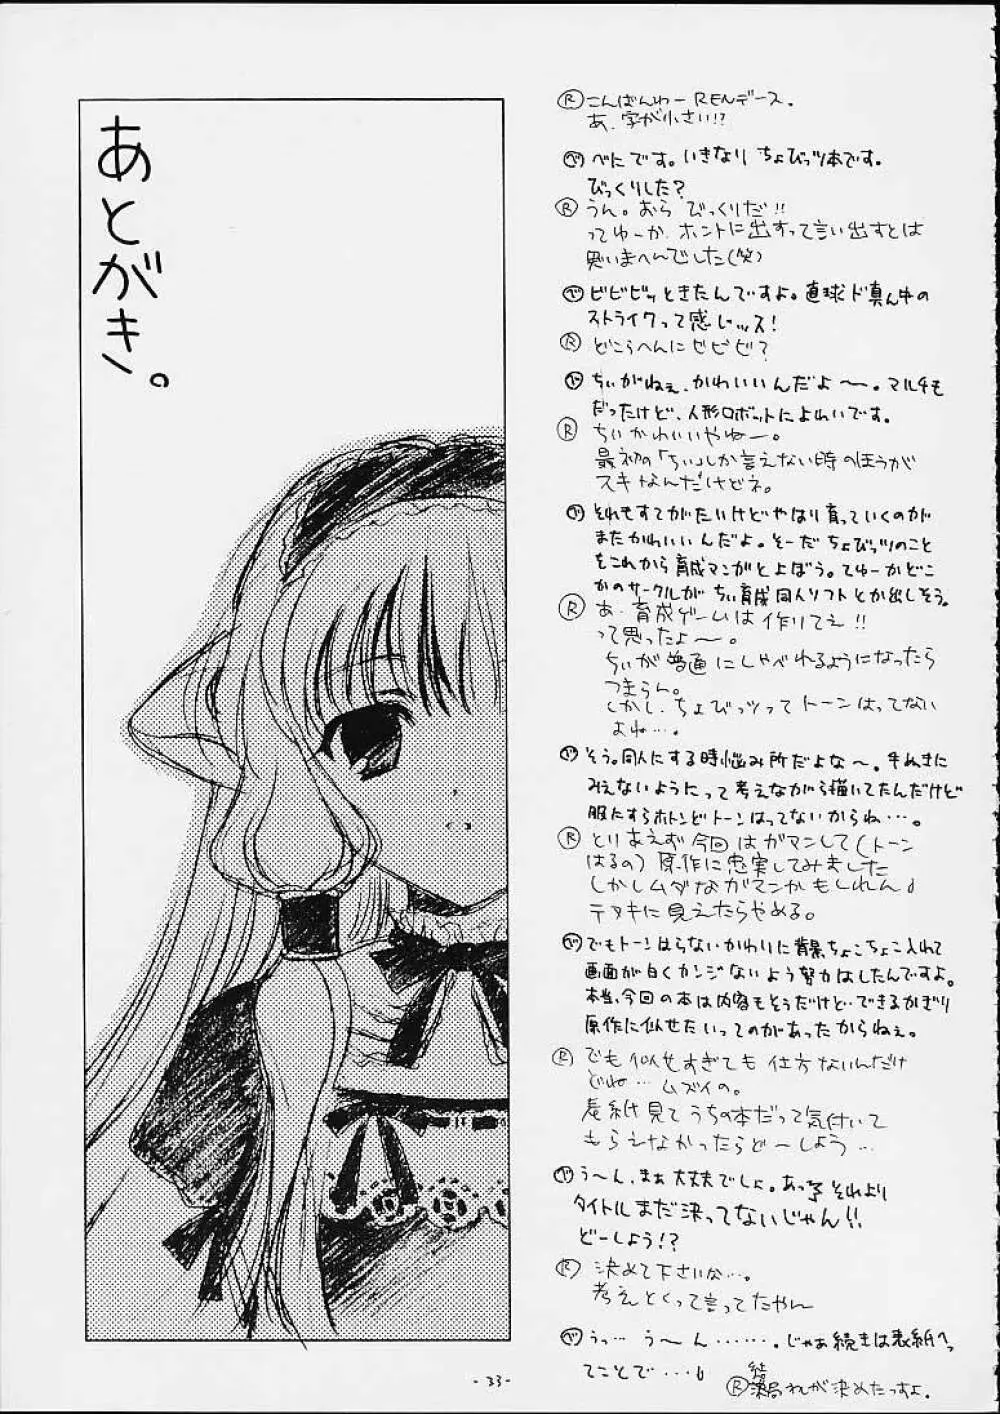 あとがき。
Ⓡ こんばんわー RENデース。
あ、字が小さい!?
べ べにです。いきなり ちょびっツ本です。
びっくりした?
Ⓡ うん。おら びっくりだ!!
ってゆーか、ホントに出すって言い出すとは
思いまへんでした(笑)
べ ビビビッときたんですよ。直球ド真ん中の
ストライクって感じッス!
Ⓡ どこらへんにビビビ?
べ ちぃがねぇ、かわいいんだよ〜〜。マルチも
だったけど、人形ロボットによわいです。
Ⓡ ちぃかわいいやねー。
最初の「ちぃ」しか言えない時のほうが
スキなんだけどネ。
べ それもすてがたいけどやはり育っていくのが
またかわいいんだよ。そーだ ちょびっツのこと
をこれから育成マンガとよぼう。てゆーかどこ
かのサークルが ちぃ育成同人ソフトとか出しそう。
Ⓡ あ、育成ゲームは作りてえ!!
って思ったよ〜。
ちぃが普通にしゃべれるようになったら
つまらん。
しかし、ちょびっツってトーンはってない
よね…。
べ そう。同人にする時悩み所だよな〜。手ぬきに
みえないようにって考えながら描いてたんだけど
服にすらホトンどトーンはってないからね…。
Ⓡ とりあえず今回はガマンして(トーン
はるの)原作に忠実してみました
しかしムダなガマンかもしれん♩
テヌキに見えたらやめる。
べ でもトーンはらないかわりに背景ちょこちょこ入れて
画面が白くカンジないよう努力はしたんですよ。
本当、今回の本は内容もそうだけど…できるかぎり
原作に似せたいってのがあったからねぇ。
Ⓡ でも似せすぎても仕方ないんだけ
どね… ムズイの。
表紙見てうちの本だって気付いて
もらえなかったらどーしよう…
べ う〜ん、まぁ大丈夫でしょ。あっ それより
タイトルまだ決ってないじゃん!!
どーしよう!?
Ⓡ 決めて下さいな…。
考えとくって言ってたやん
べ うっ… う〜ん……。じゃあ続きは表紙へっ
てことで…
Ⓡ 結局われが決めたっすよ。
- 33 -